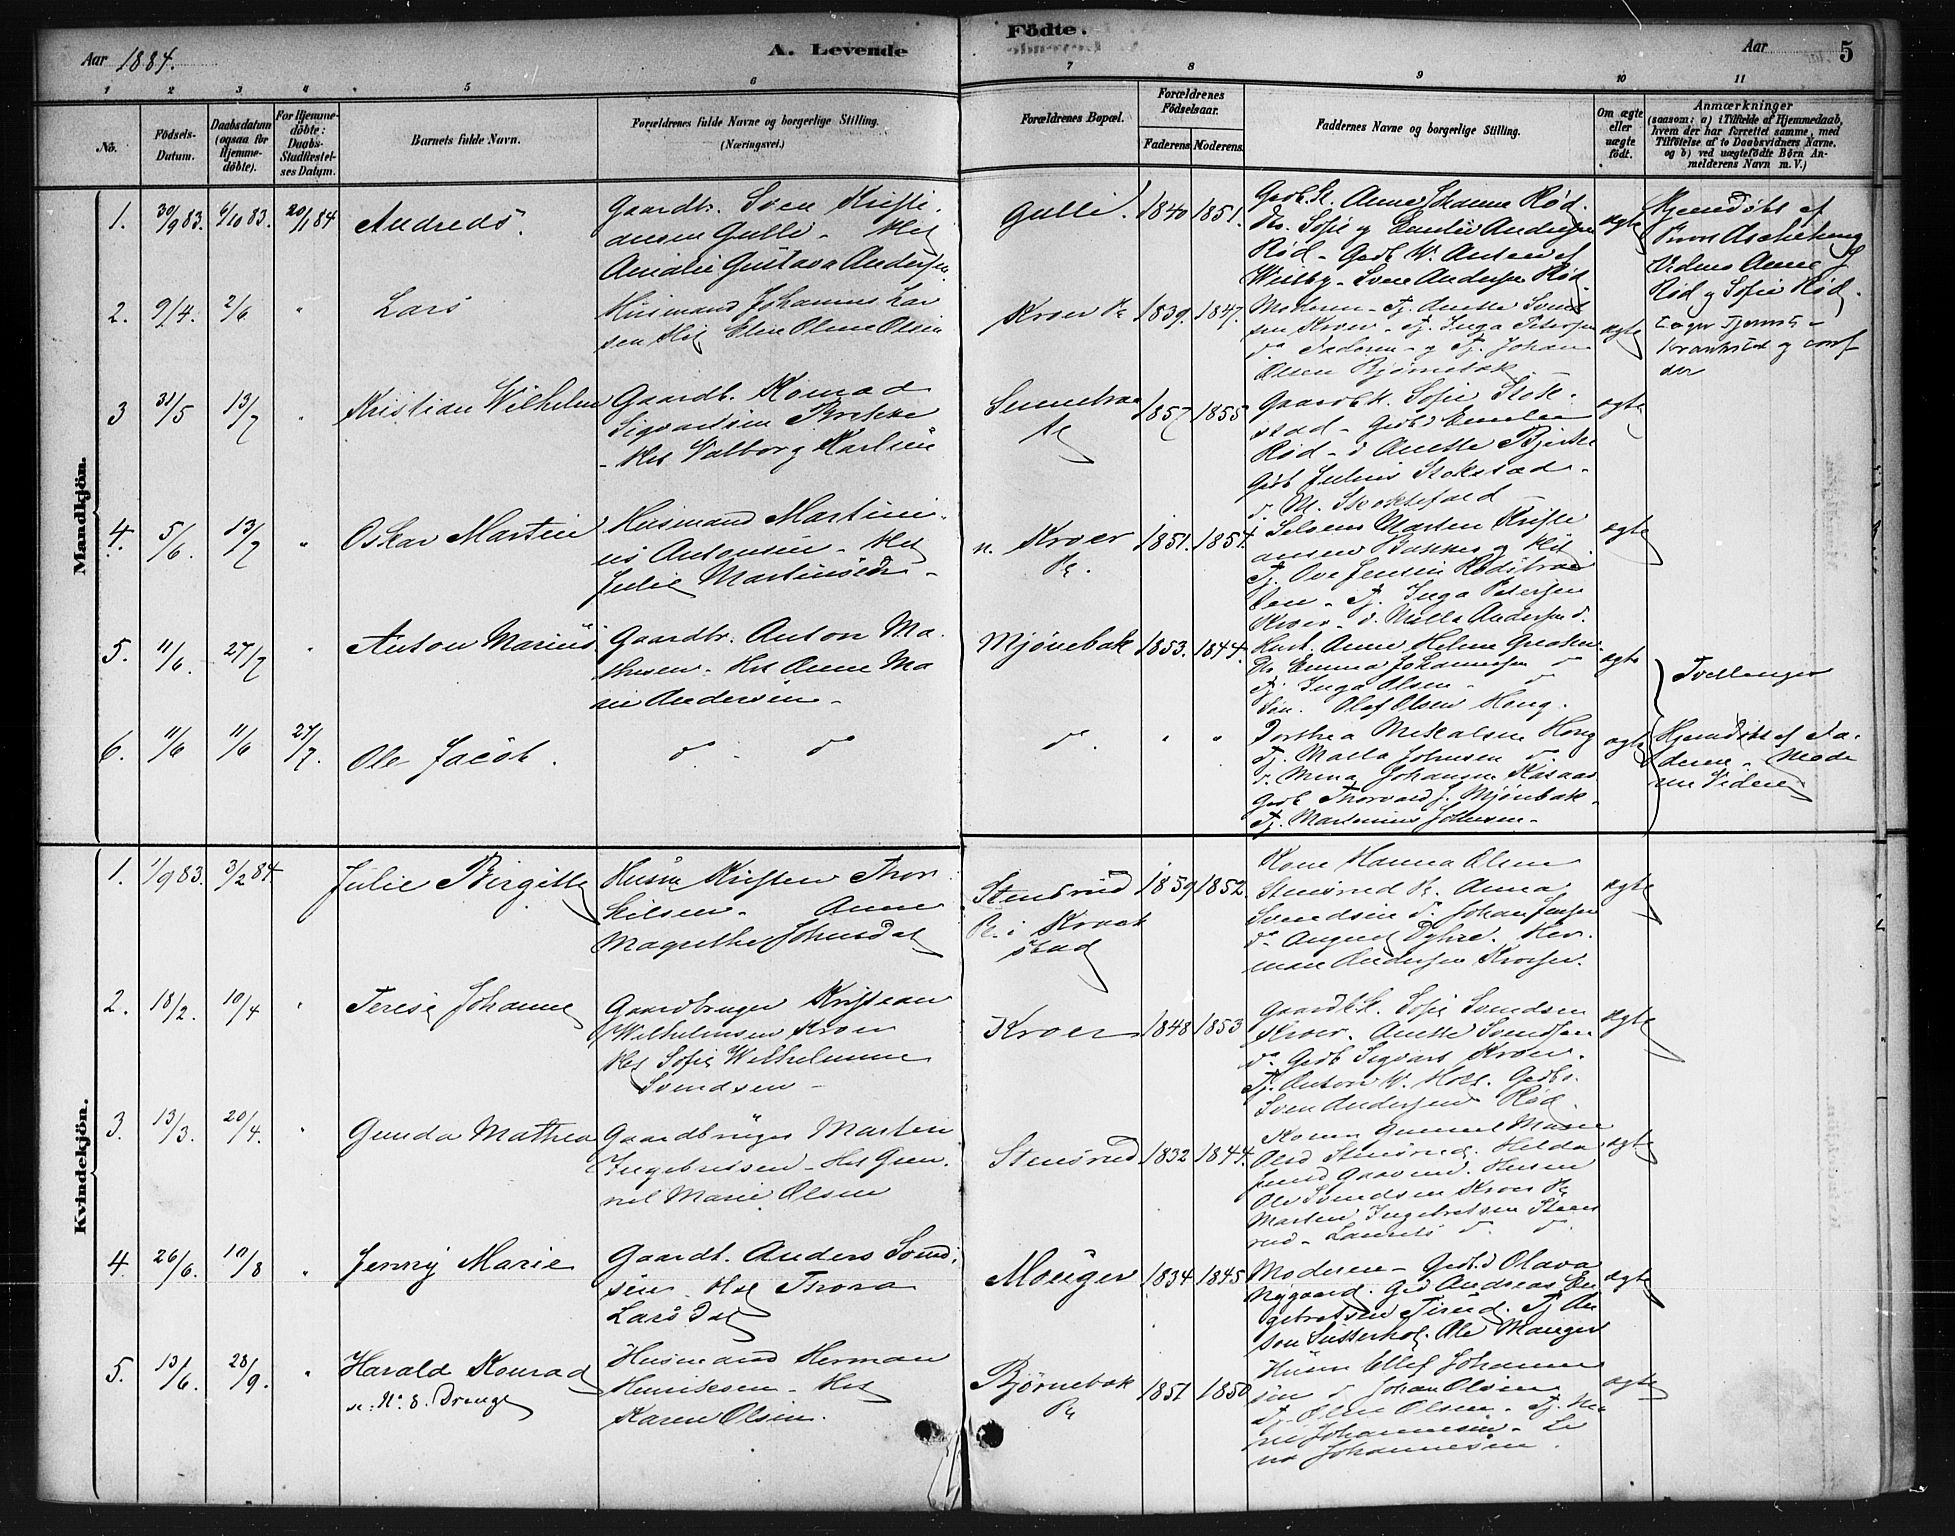 Aar 1884.
A. Levende
Födte.
Aar
5
1 2 3 4 5 6 7 8 9 10 11
No.
Födsels-
Datum.
Daabsdatum
(ogsaa for
Hjemme-
döbte).
For Hjemme-
döbte:
Daabs-
Stadfæstel-
ses Datum.
Barnets fulde Navn.
Forældrenes fulde Navne og borgerlige Stilling.
(Næringsvei.)
Forældrenes Bopæl.
Forældrenes
Födselsaar.
Faderens.
Moderens.
Faddernes Navne og borgerlige Stilling.
Om ægte
eller
uægte
födt.
Anmærkninger
(saasom: a) i Tilfælde af Hjemmedaab,
hvem der har forrettet samme, med
Tilföielse af to Daabsvidners Navne,
og b) ved uægtefödte Börn An-
melderens Navn m. V.)
Mandkjön.
1. 30/9 83. 6/10 83. 20/1 84 Andreas.
Gaardbr. Sven Kristi-
ansen Gulli -
Amalie Gustava Andersen
Gulli. 1840 1851.
Gdbk. Anne Johanne Rød.
Ds. Sofie g Emilie Andersen
Rød - Gdb. W. Antonsen
Westby - Sven Andersen Rød
ægte
Hjemdøbt af
Anne
Rød g Sofie Rød.
2. 9/4. 2/6 " Lars
Husmand Johannes Lar
sen Elen Oline Olsen
Kroer Pl 1839. 1847.
Moderen - Tj. Anette Svend
sen Kroer - Tj. Inga Petersen
do Faderen - g Tj. Johan
Olsen Bjørnebæk
ægte
3 31/5 13/7 " Kristian Wilhelm
Gaardb. Konrad
Sigvartsen
Valborg Karlsen
1857 1855
Gaardbk. Sofie Stok-
stad - Gdbd Emilie
Rød - d Anette Bjerke
Gdb Julius Stokstad -
ægte
4. 5/6. 13/7 " Oskar Martin
Husmand Martini-
us Antonsen -
Julie Martinsen -
n. Kroer
Pl. 1851. 1854.
Selveier Marten Kristi
ansen Bakker g
Tj. Ove Jensen
Tj. Inga Petersen
Kroer - d. Milla Andersen d.
ægte
5. 11/6. 27/7 " Anton Marius
Gaardbr. Anton Ma-
thisen - Anne Ma
rie Andersen -
Mjønebak 1853. 1844.
Hust. Anne Helene
Ds Emma Johannesen do
Tj Inga Olsen - do
Søn. Olaf Olsen Haug.
ægte
Tvillinger
6. 11/6 11/6 27/7. Ole Jacob.
do - do
do. " "
Dorthea Mikalsen Haug
Tj. Malla Johnsen do
d. Mina Johansen Kasaas
Gdb Thorvald J. Mjønebak -
Tj. Martinius Johnsen -
ægte
Hjemdøbt af Fa-
deren - Mode
ren Vidne
Kvindekjön.
1. 1/9 83. 3/2 84. Julie Birgitte
Husm Kristen Thor-
kilsen - Anne
Magrethe Johnsdat
Stensrud
Pl. i Kraak
stad 1859 1852.
Kone Hanna Olsen
Stensrud Pl. Anna
Svendsen d. Johan Jensen
do August Dyhre. Her-
man Andersen Kroer.
ægte
2. 18/2. 10/4 " Terese Johanne
Gaardbruger Kristian
Wilhelmsen Kroer
Sofie Wilhelmine
Svendsen -
Kroer 1848 1853
Gaardbk. Sofie Svendsen
Kroer. Anette Svendsen
do Gdb Sigvart Kroer.
Tj. Anton W. Holt. Gdbs.
Sven Andersen Rød.
ægte
3. 13/3. 20/4. " Gunda Mathea
Gaardbruger Marten
Ingebretsen - Gun-
nel Marie Olsen
Stensrud 1832 1844.
Konen Gunnel Marie
Olsd Stensrud. Helda
Husm
Ole Svendsen Kroer Pl
Marten Ingebretsen Stens
rud - do do.
ægte
4. 26/6. 10/8 " Jenny Marie
Gaardb. Anders Svend-
sen Thora
Larsdat
Monger 1834 1845
Moderen - Gdbd Olava
Nygaard. Gd Andreas En
gebretsen Tirud. Tj An
ton Ole Manger
ægte
5. 13/6. 28/9. " Harald Konrad
se: No 8. Drenge
Husmand Herman
Henriksen -
Karen Olsen.
Bjørnebæk
Pl 1851 1850
Husm Ellef Johannes
sen d Johan Olsen
Tj. Olsen - Tj.
Johannesen - Li
na Johannesen.
ægte